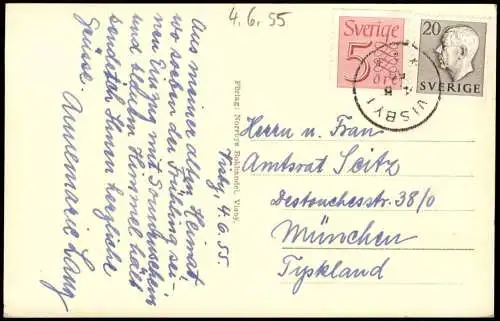 4.6.55
Visby, 4. 6. 55.
Aus meiner alten Heimat,
wo soeben der Frühling sei-
nen Einzug mit Sonnenschein
und blauem Himmel hält
sendet Ihnen herzliche
Grüsse. Annemarie Lang
Förlag: Norrbys Bokhandel, Visby.
Sverige
5
öre
20
SVERIGE
VISBY 1
Herrn u. Frau
Amtsrat Seitz
Destouchesstr. 38/0
München
Tyskland